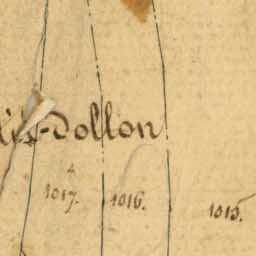 dollon
1017. 1016. 1015.